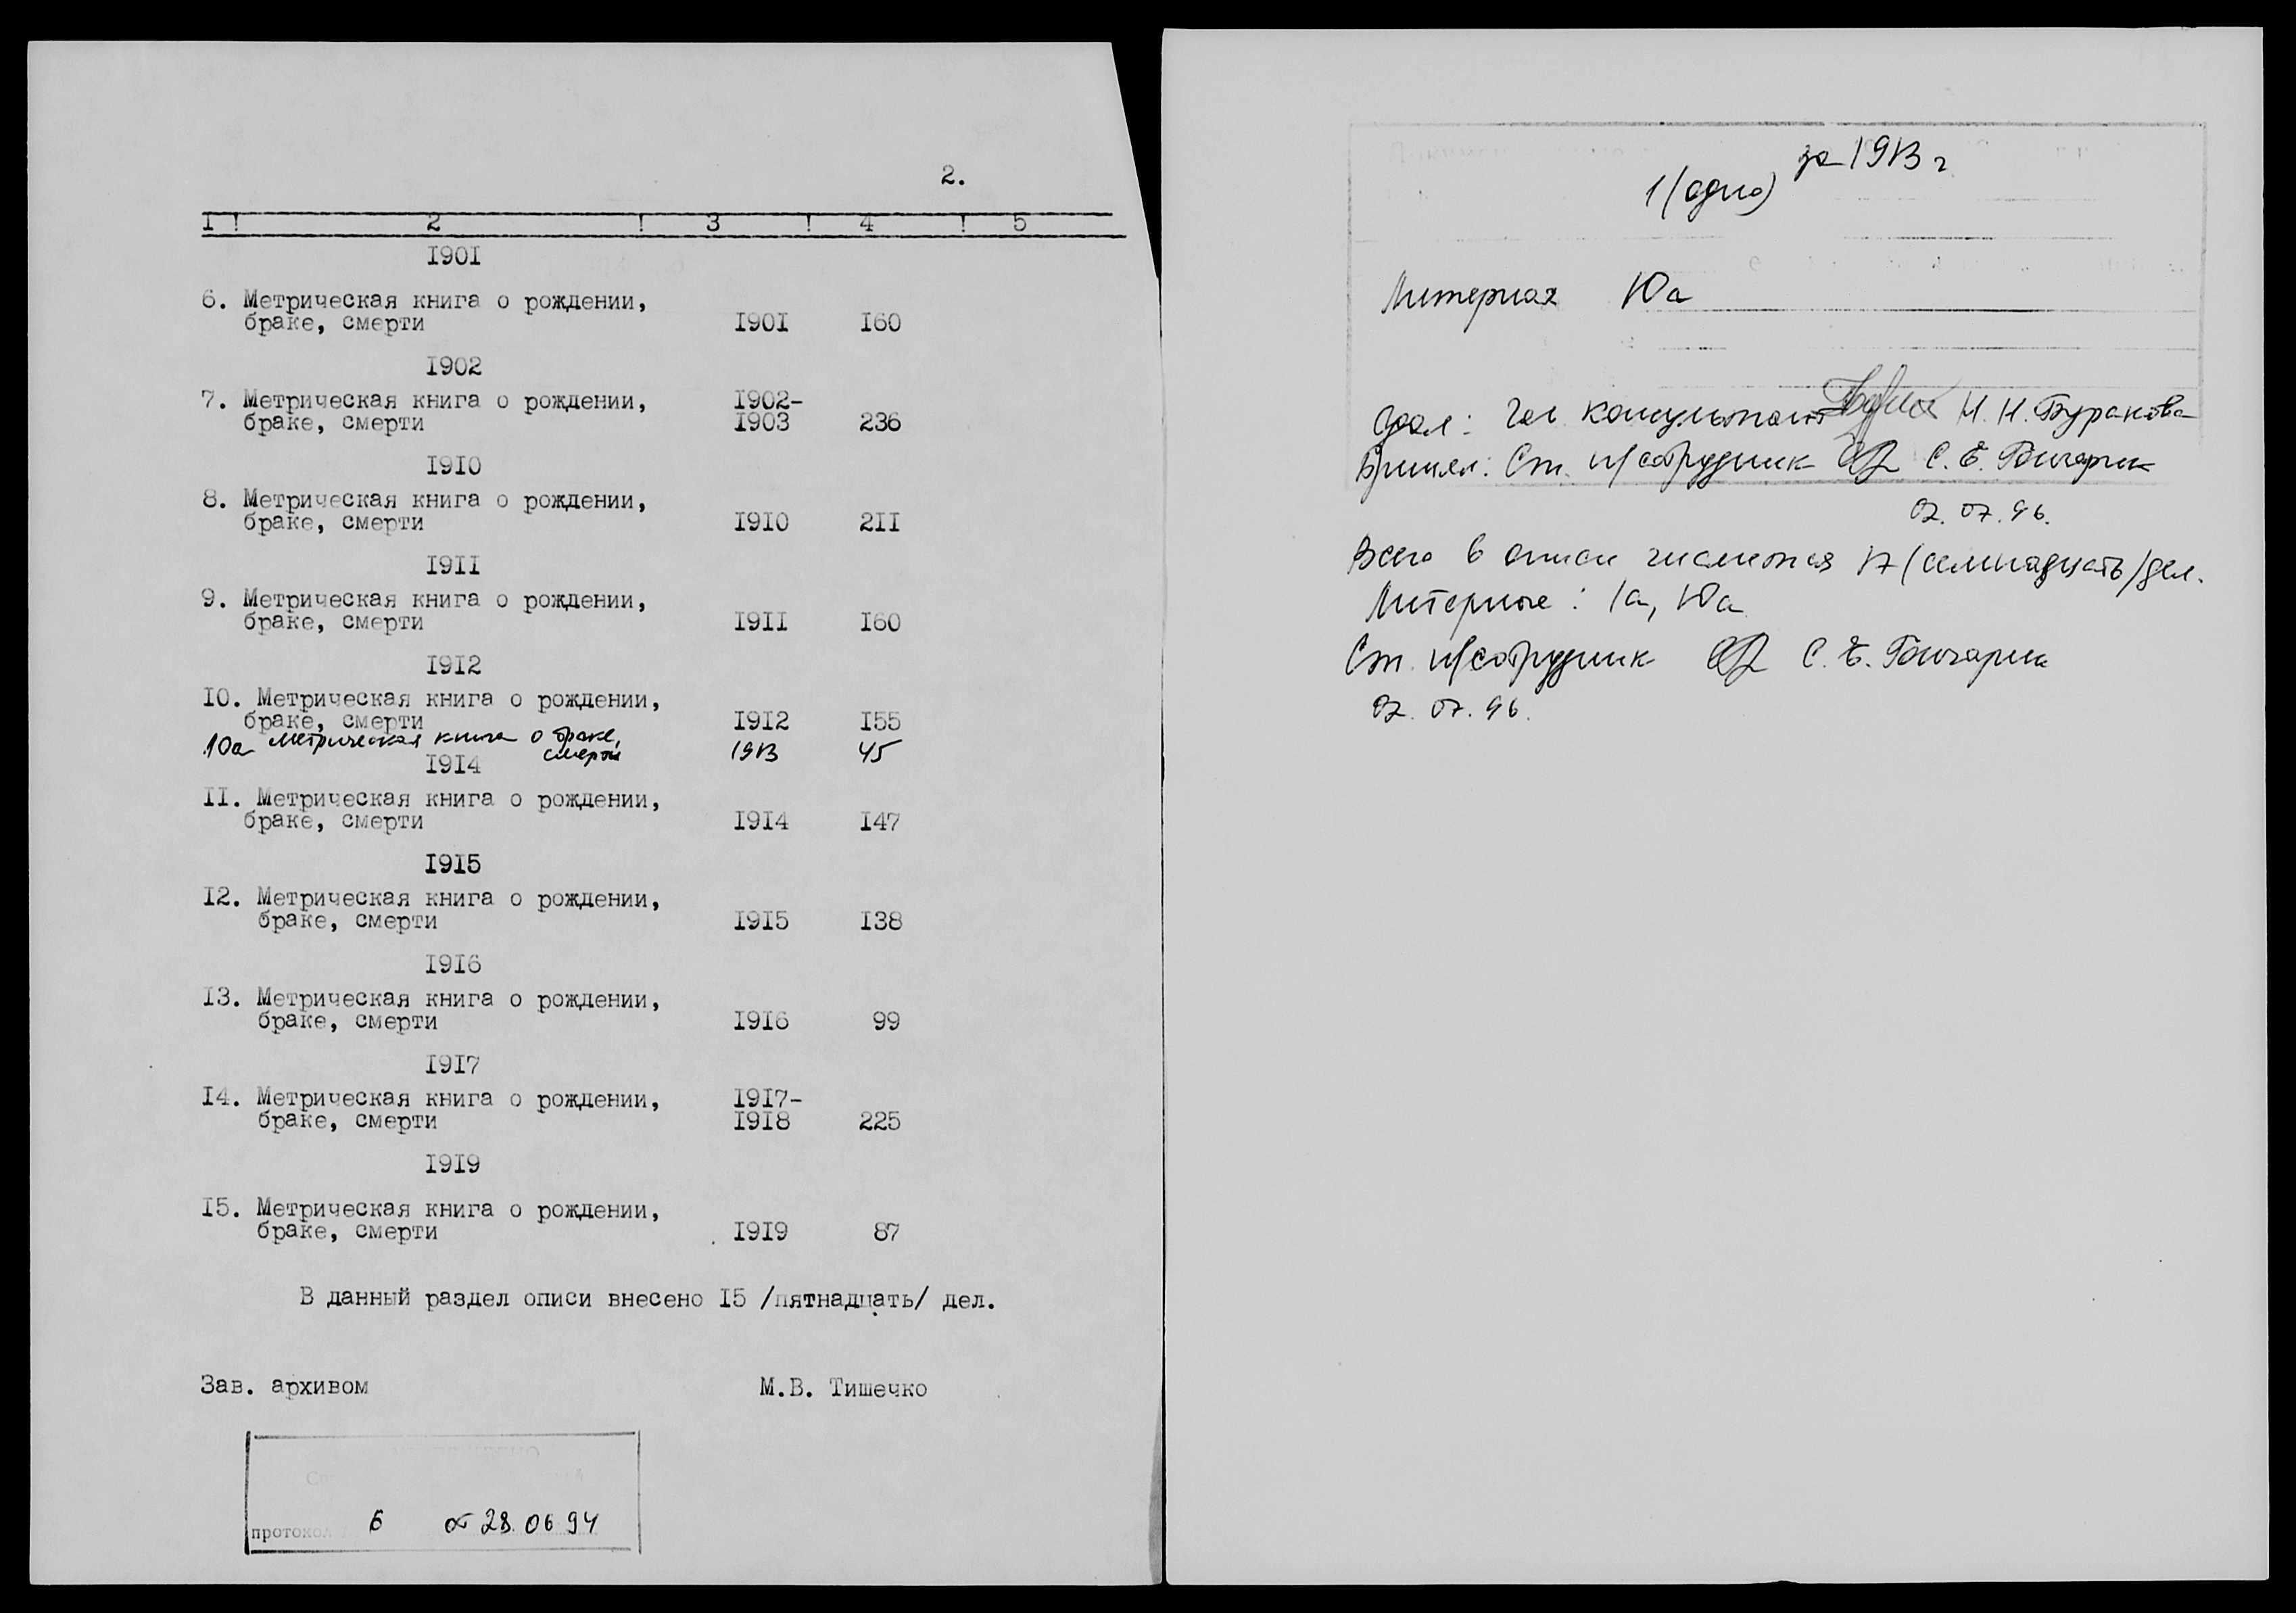 2.
I ! 2 ! 3 ! 4 ! 5
I90I
6. Метрическая книга о рождении,
браке, смерти I90I I60
I902
7. Метрическая книга о рождении, I902-
браке, смерти I903 236
I9I0
8. Метрическая книга о рождении,
браке, смерти I9I0 2II
I9II
9. Метрическая книга о рождении,
браке, смерти I9II I60
I9I2
I0. Метрическая книга о рождении,
браке, смерти I9I2 I55
10а Метрическая книга о браке, 1913 45
смерти
I9I4
II. Метрическая книга о рождении,
браке, смерти I9I4 I47
I9I5
I2. Метрическая книга о рождении,
браке, смерти I9I5 I38
I9I6
I3. Метрическая книга о рождении,
браке, смерти I9I6 99
I9I7
I4. Метрическая книга о рождении, I9I7-
браке, смерти I9I8 225
I9I9
I5. Метрическая книга о рождении,
браке, смерти I9I9 87
В данный раздел описи внесено I5 /пятнадцать/ дел.
Зав. архивом М.В. Тишечко
протокол 6 от 28.06 94
за 1913 г
1 (одно)
Литерная 10а
Сдал: Гл консультант Н. Н. Буракова
Принял: Ст. н/сотрудник С. Е.
02. 07. 96.
Всего в описи числится 17 (семнадцать) дел.
Литерные: 1а, 10а
Ст. н/сотрудник С. Е.
02. 07. 96.